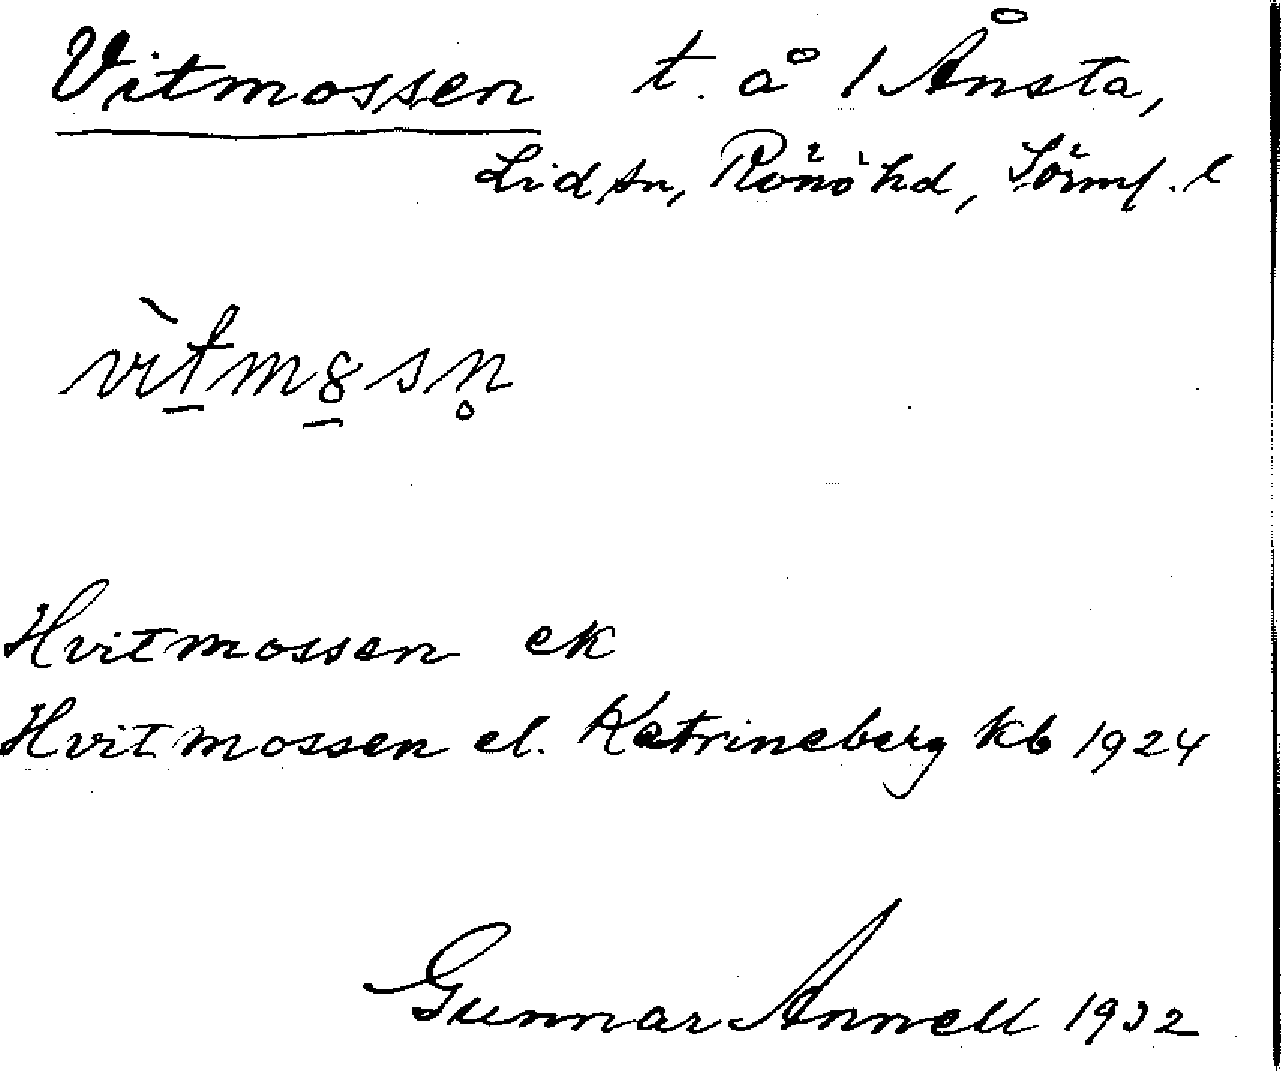 Vitmossen t. å 1 Ånsta,
Lid sn, Rönö hd, Sörml. l
vìtmꝏsn̥
Hvitmossen ek
Hvitmossen el. Katrineberg kb 1924
Gunnar Annell 1932